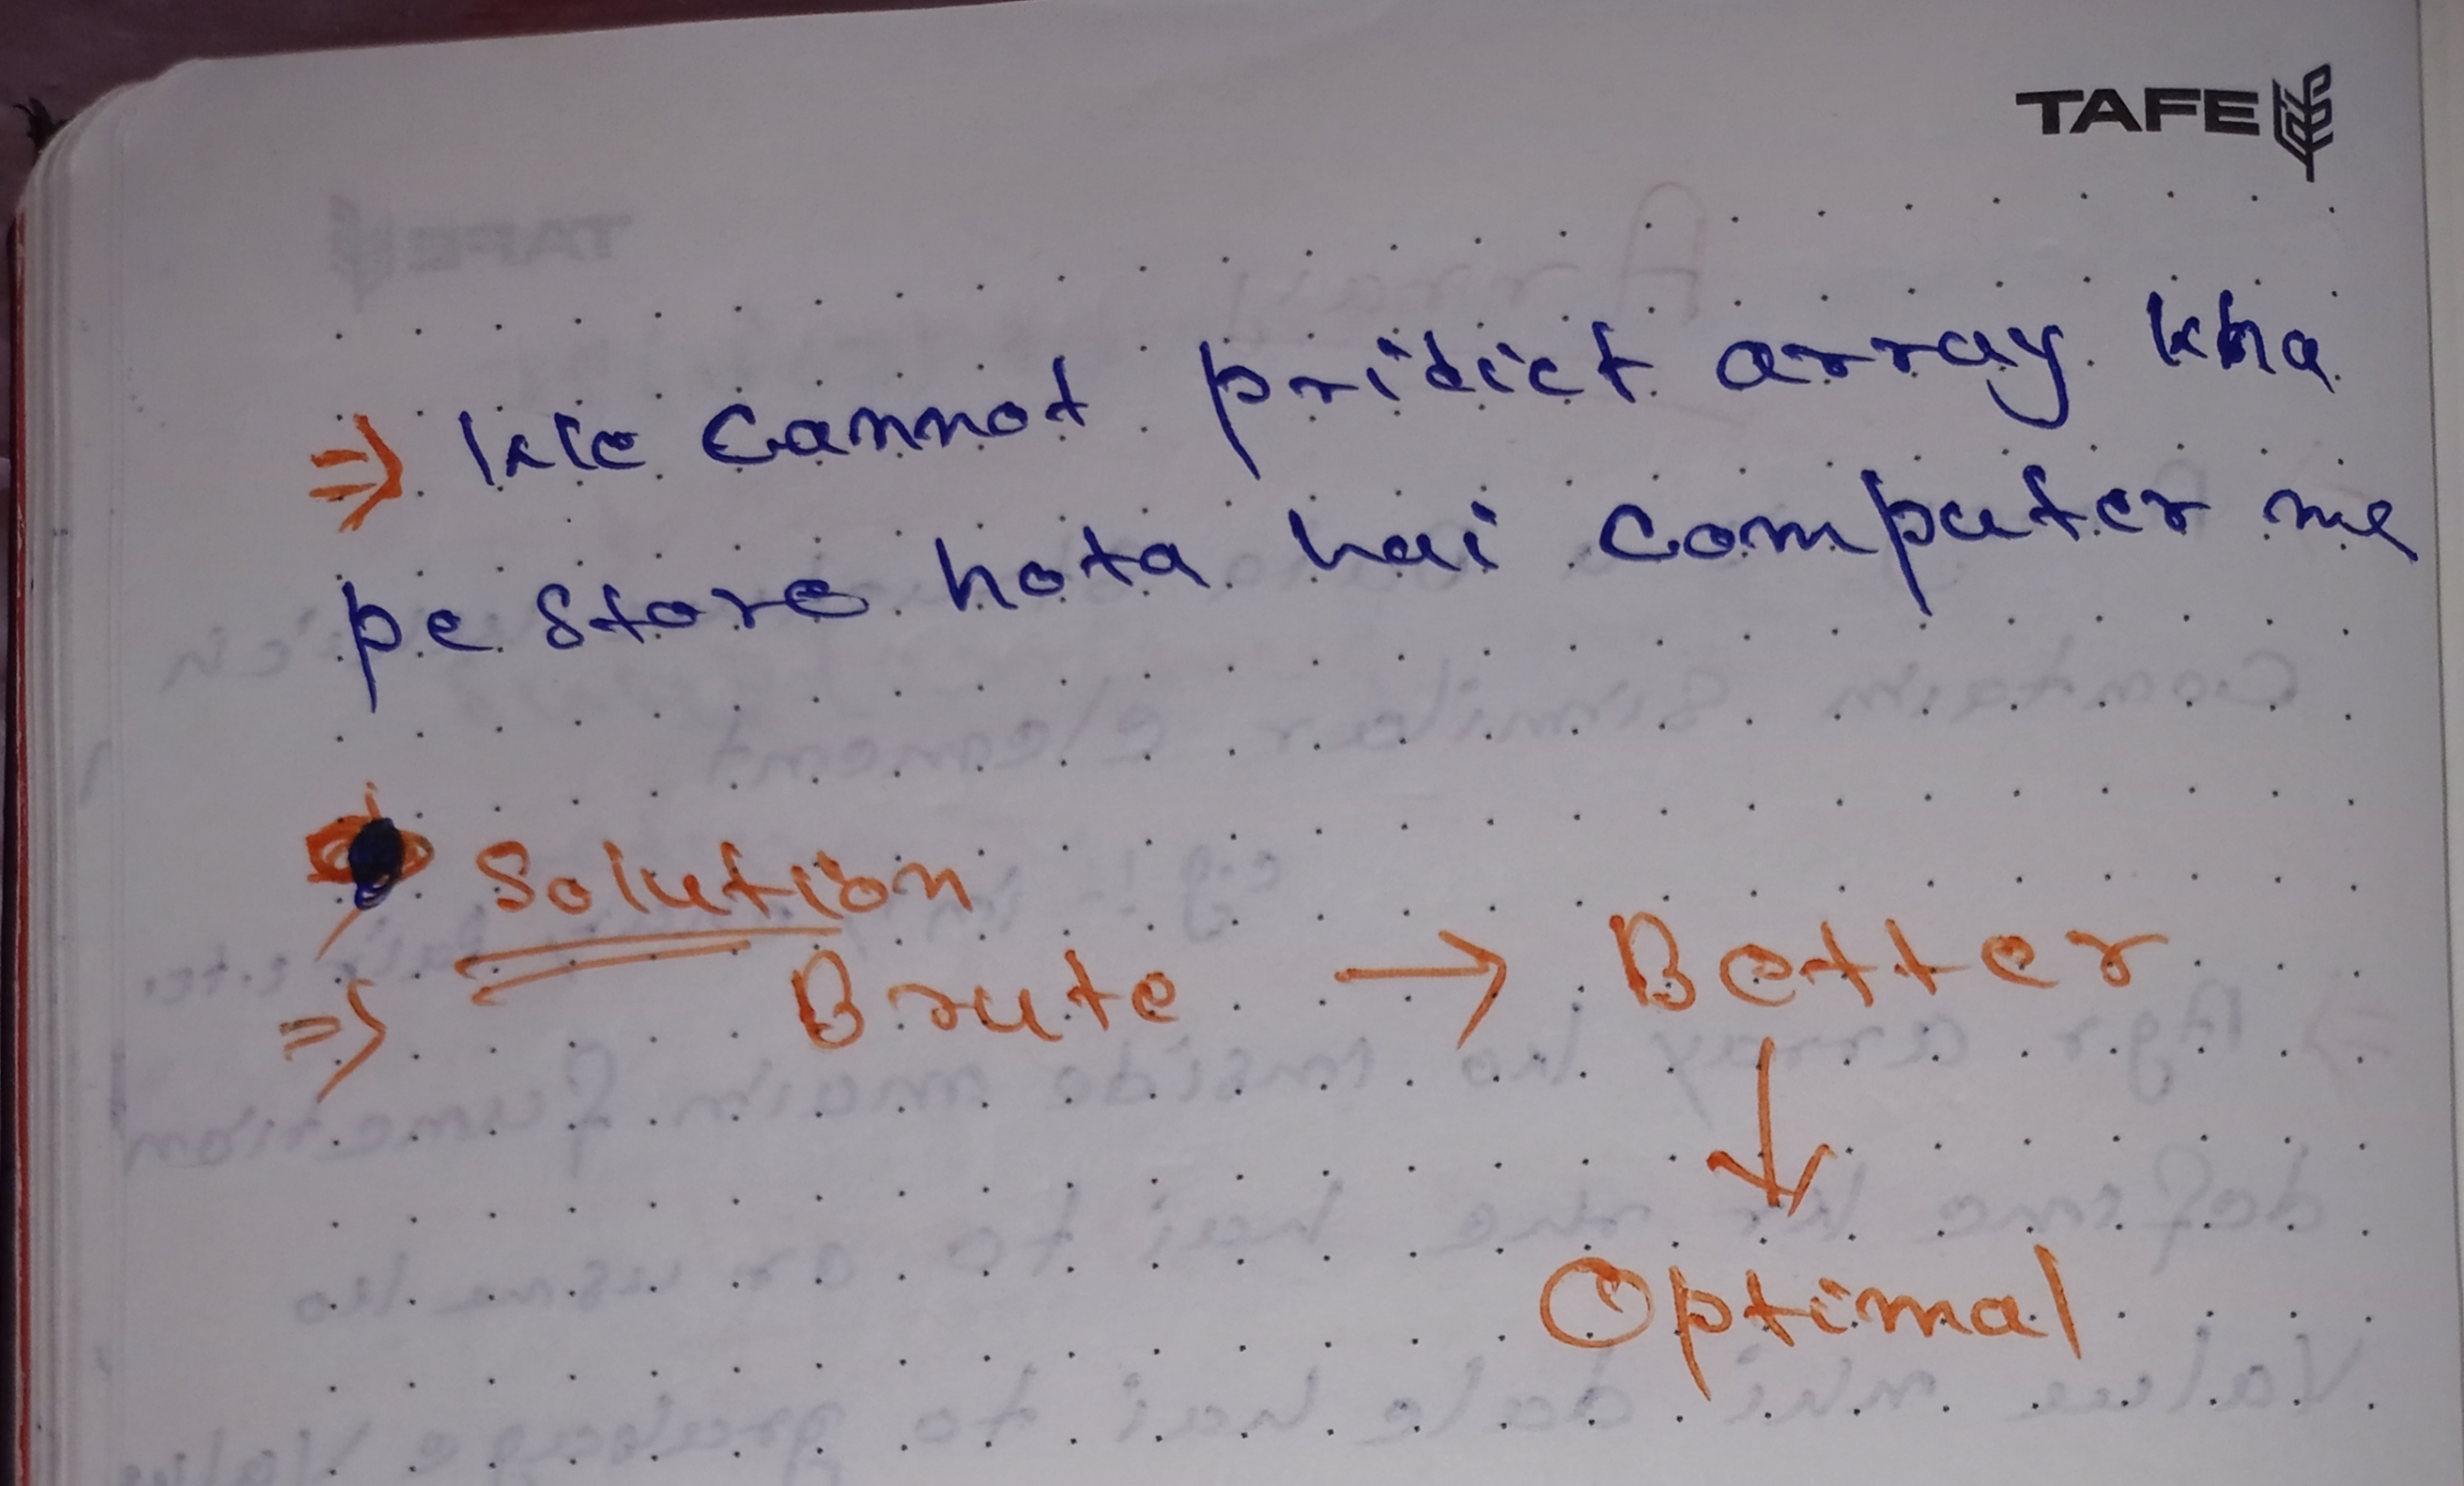 TAFE
⇒ We cannot pridict array kha
pe store hota hai computer me
Solution
⇒ Brute → Better
↓
Optimal